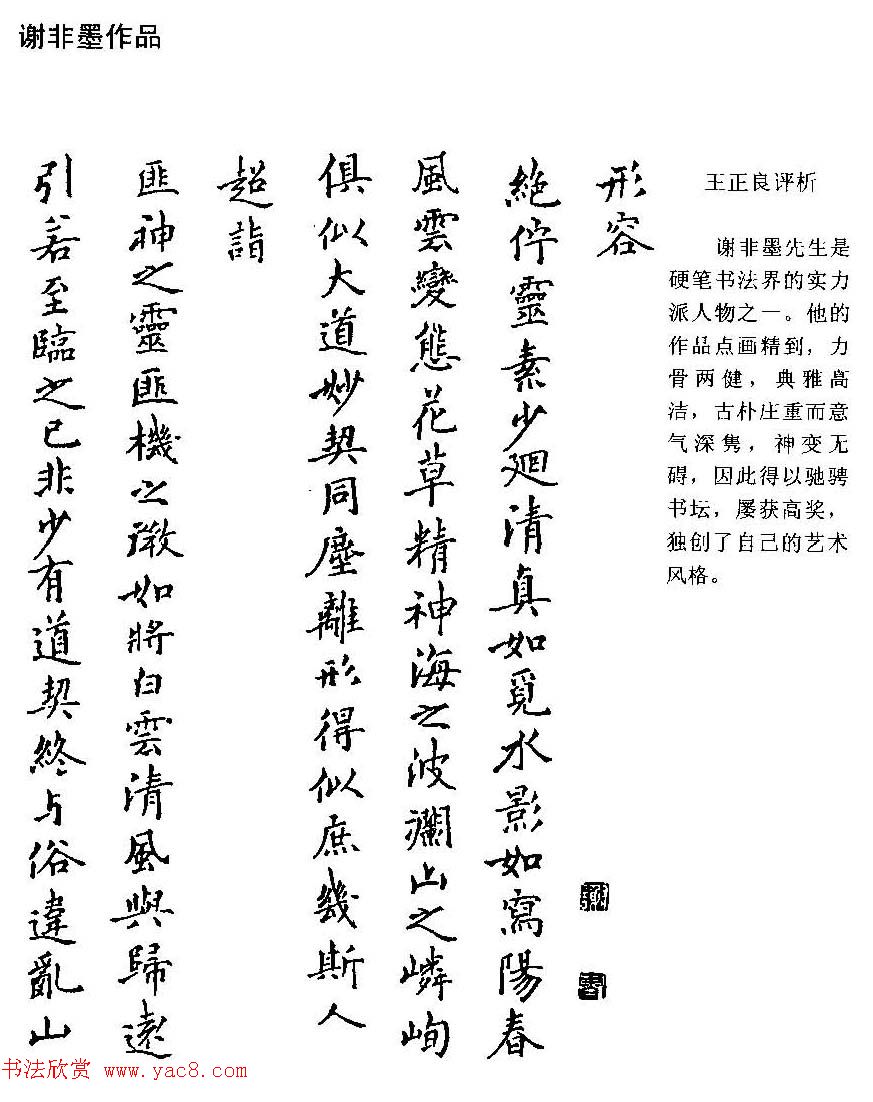 谢非墨作品
王正良评析
谢非墨先生是
硬笔书法界的实力
派人物之一。他的
作品点画精到，力
骨两健，典雅高
洁，古朴庄重而意
气深隽，神变无
碍，因此得以驰骋
书坛，屡获高奖，
独创了自己的艺术
风格。
形容
絶佇靈素少迴清真如覓水影如寫陽春
風雲變態花草精神海之波瀾山之嶙峋
俱似大道妙契同塵離形得似庶幾斯人
超詣
匪神之靈匪機之微如將白雲清風與歸遠
引若至臨之已非少有道契終与俗違亂山
书法欣赏 www.yac8.com